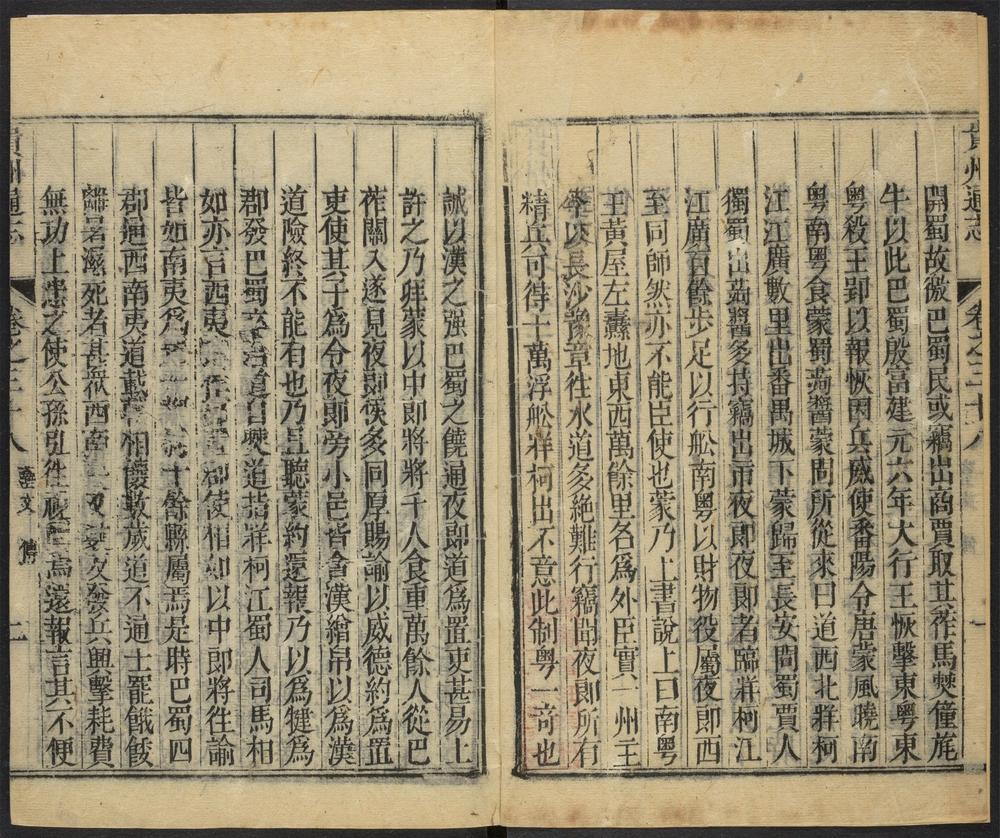 貴州通志 卷之三十八 一
開蜀故徼巴蜀民或竊出商賈取其莋馬僰僮旄
牛以此巴蜀殷富建元六年大行王恢擊東粤東
粤殺王郢以報恢因兵威使番陽令唐蒙風曉南
粤南粤食蒙蜀蒟醬蒙問所從來曰道西北牂柯
江江廣數里出番禺城下蒙歸至長安問蜀賈人
獨蜀出蒟醬多持竊出市夜郎夜郎者臨牂柯江
江廣百餘步足以行船南粤以財物役屬夜郎西
至同師然亦不能臣使也蒙乃上書說上曰南粤
王黃屋左纛地東西萬餘里名爲外臣實一州主
今以長沙豫章往水道多絕難行竊聞夜郎所有
精兵可得十萬浮船牂柯出不意此制粤一奇也
誠以漢之强巴蜀之饒通夜郎道爲置吏甚易上
許之乃拜蒙以中郎將將千人食重萬餘人從巴
莋關入遂見夜郎侯多同厚賜諭以威德約爲置
吏使其子爲令夜郎旁小邑皆貪漢繒帛以爲漢
道險終不能有也乃且聽蒙約還報乃以爲犍爲
郡發巴蜀卒治道自僰道指牂柯江蜀人司馬相
如亦言西夷 郡使相如以中郎將往諭
皆如南夷爲 十餘縣屬焉是時巴蜀四
郡通西南夷道載 相饟數歲道不通士罷餓餧
離暑濕死者甚衆西南 又 數發兵興擊耗費
無功上患之使公孫弘往 焉還報言其不便
貴州通志 卷之三十八 藝文 傳 二